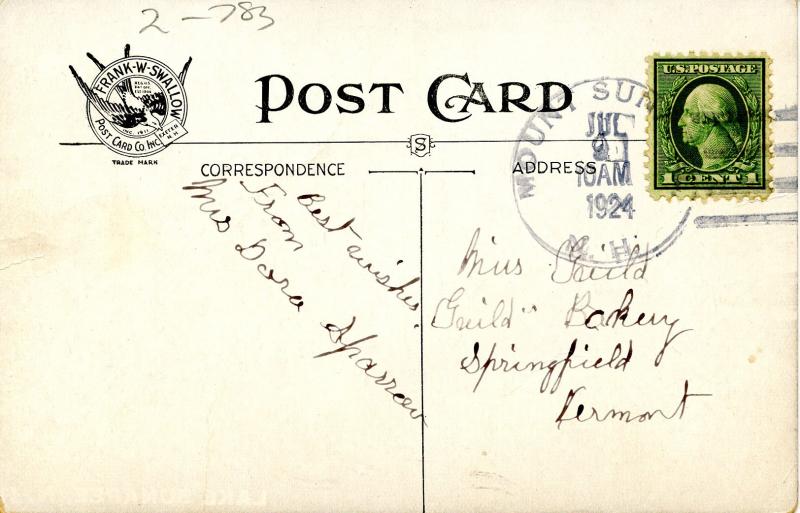 2-783
FRANK-W-SWALLOW
POST CARD CO. INC.
INC. 1911
EXETER
N.H.
TRADE MARK
POST CARD
S
CORRESPONDENCE
ADDRESS
U.S. POSTAGE
1 CENT 1
MOUNT SUN
JUL
10AM
1924
N. H.
Best wishes.
From
Mrs Dora Sparrow
Miss Guild
Guild" Bakery
Springfield
Vermont